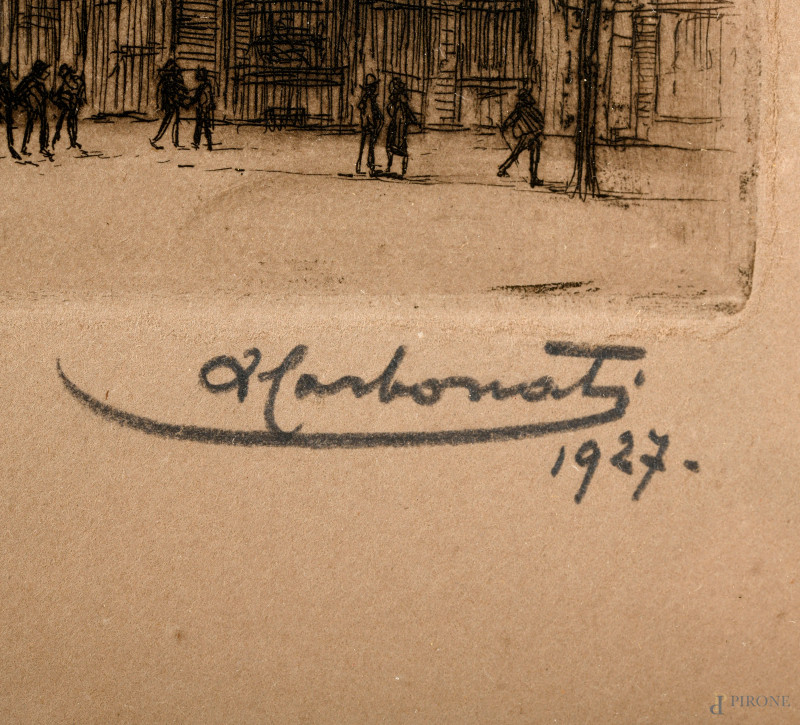 A Carbonati
1927.
PIRONE